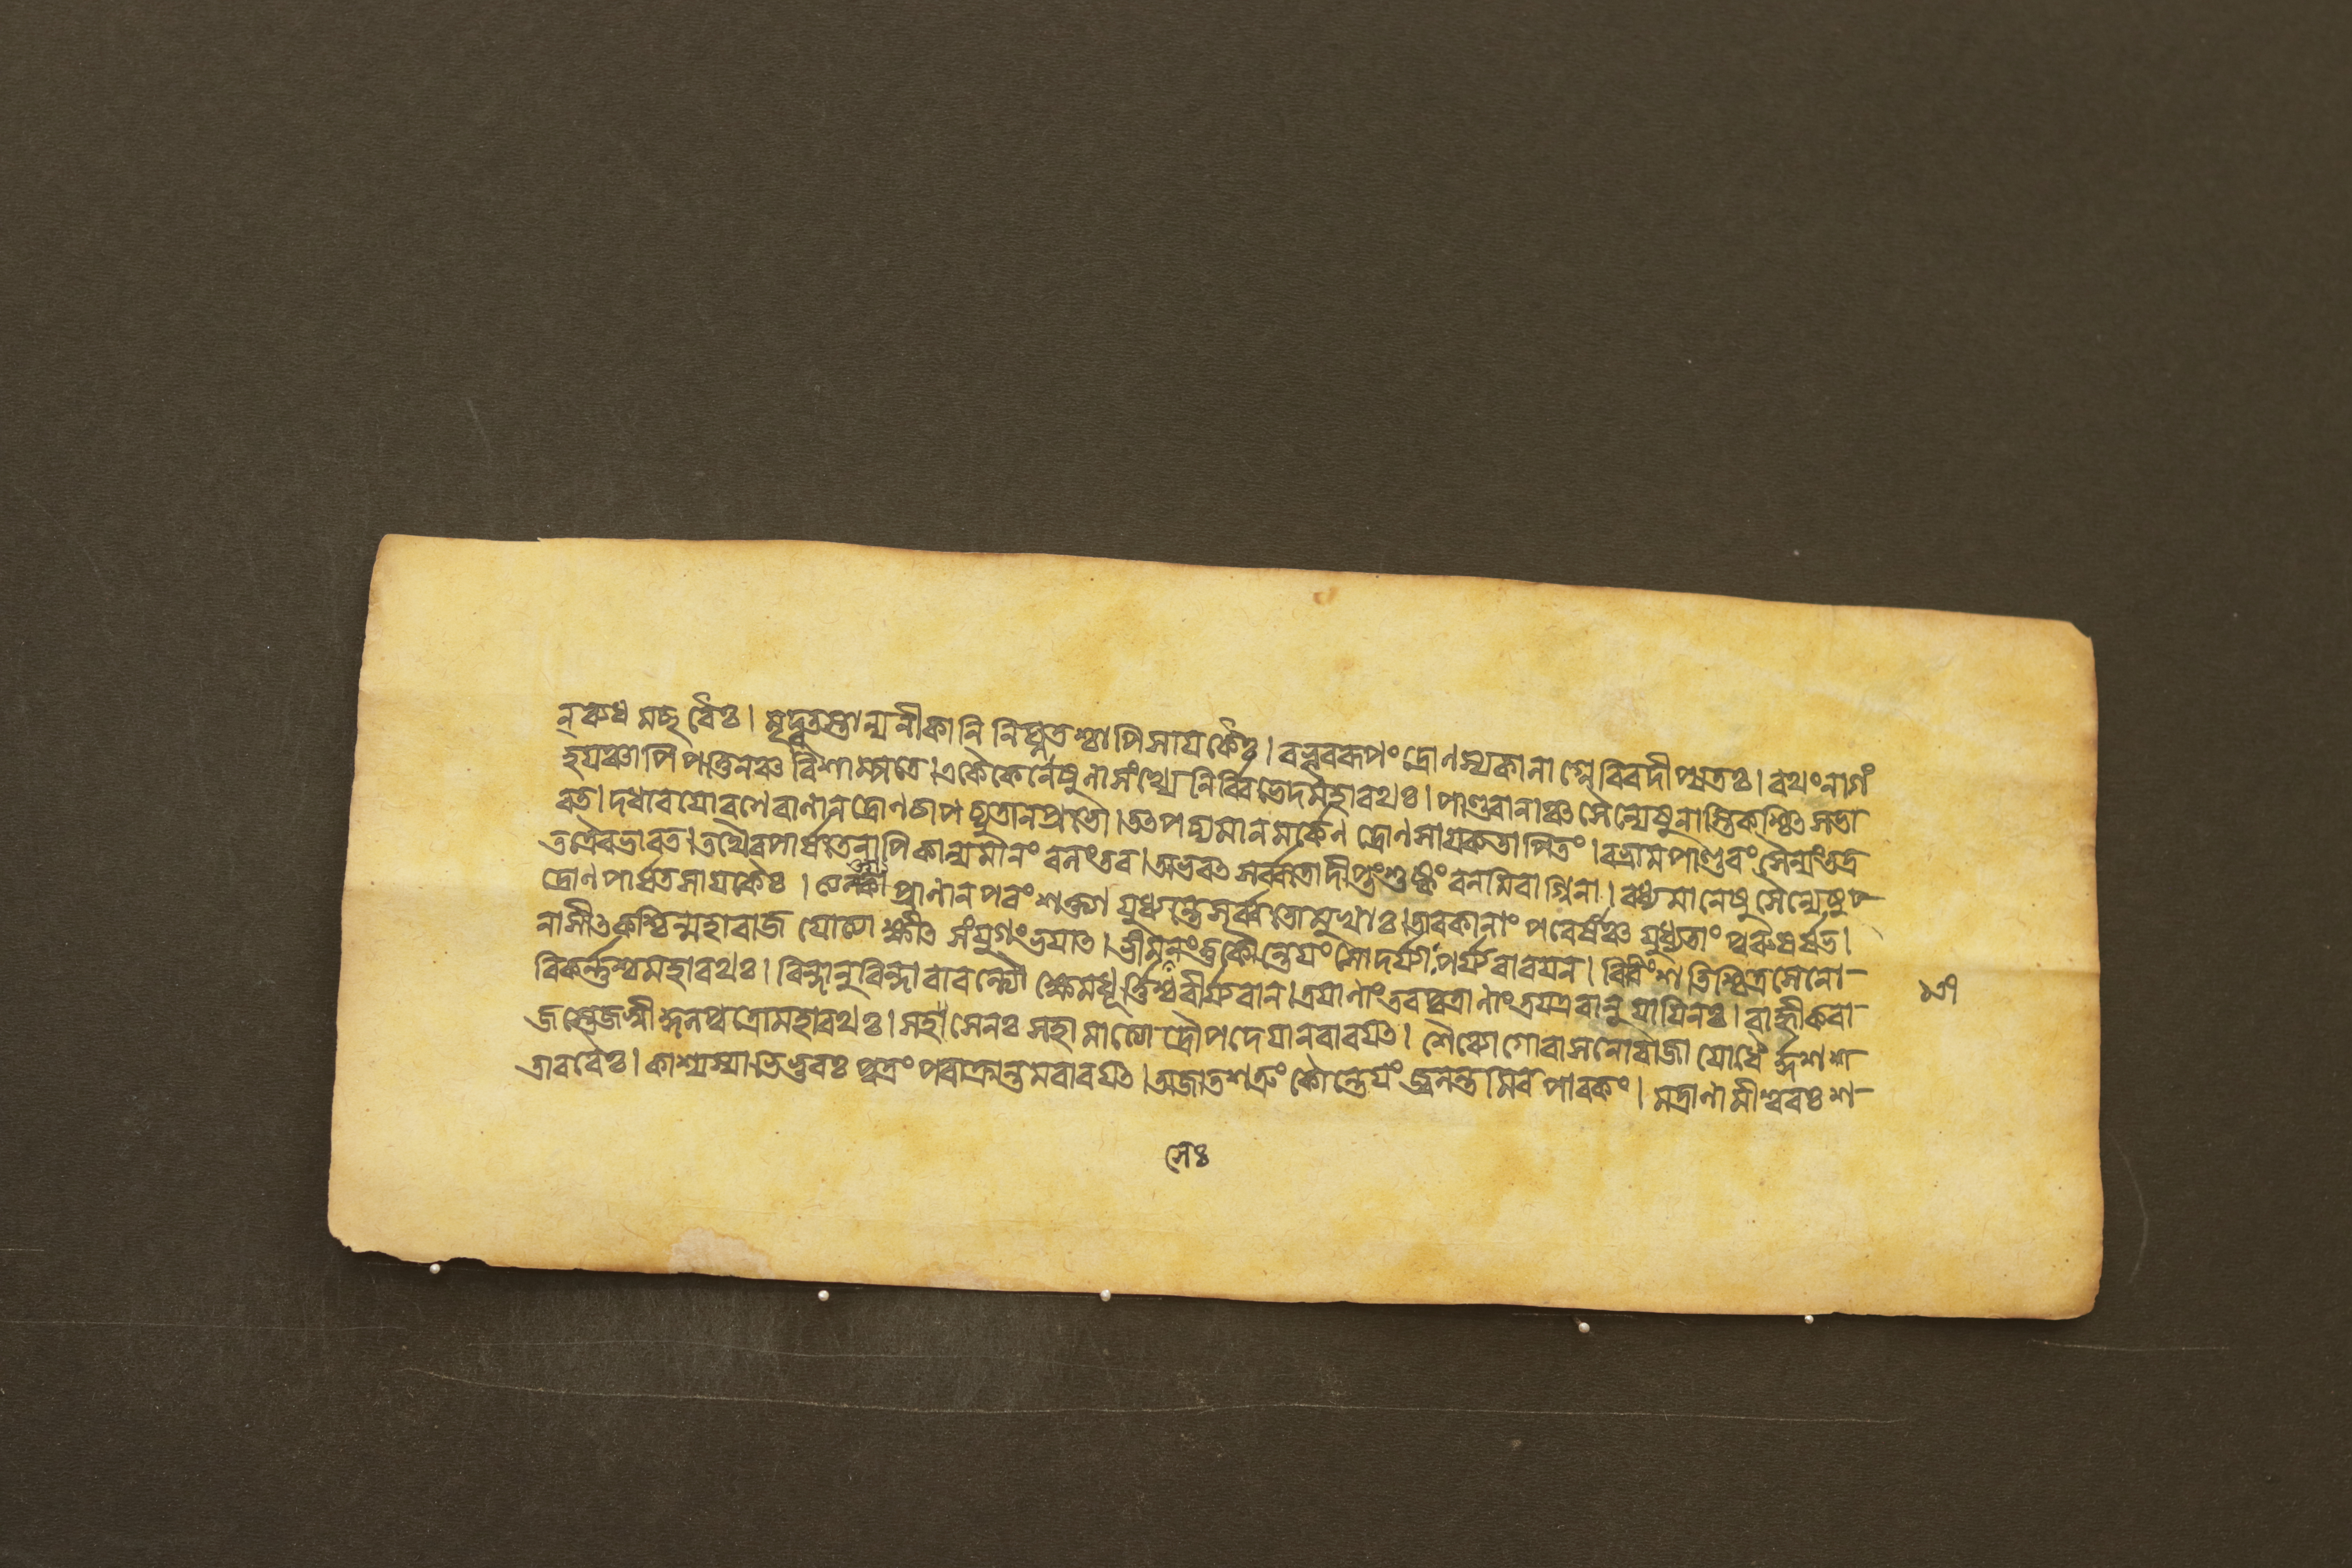 ন্‌রুধমচ্ছরৈঃ। মৃদ্গতস্তান্যনীকানি নিঘ্নতশ্চাপি সায়কৈঃ। বভূব রূপং দ্রোণস্য কালাগ্নেরিব দীপ্যতঃ। রথং নাগং
হয়ঞ্চাপি পত্তিনঞ্চ বিশাম্পতে। একৈকেনেষুণা সংখ্যে নির্ব্বিভেদ মহারথঃ। পাণ্ডবানাঞ্চ সৈন্যেষু নাস্তি কশ্চিৎ স ভা
রত। দধার যো রণে বাণান্ দ্রোণচাপচ্যুতান্ প্রভো। তৎ পচ্যমানমর্কেণ দ্রোণসায়কতাপিতং। বভ্রাম পাণ্ডবং সৈন্যং তত্র
তত্রৈব ভারত। তথৈব পার্ষতেনাপি কাল্যমানং বলং তব। অভবৎ সর্ব্বতো দীপ্তং শুষ্কং বনমিবাগ্নিনা। বধ্যমানেষু সৈন্যেষু
দ্রোণপার্ষতসায়কৈঃ। ত্যক্ত্বা প্রাণান্ পরং শক্ত্যা যুধ্যন্তে সর্ব্বতোমুখাঃ। তাবকানাং পরেষাঞ্চ যুধ্যতাং ভরতর্ষভ।
নাসীৎ কশ্চিন্মহারাজ যোত্যাক্ষীৎ সংযুগং ভয়াৎ। ভীমসেনং তু কৌন্তেয়ং সোদর্য্যাঃ পর্য্যবারয়ন্। বিবিংশতিশ্চিত্রসেনো
বিকর্ন্নশ্চ মহারথঃ। বিন্দানুবিন্দাবাবন্ত্যৌ ক্ষেমধূর্ত্তিশ্চ বীর্য্যবান্। ত্রয়াণাং তব পুত্রাণাং ত্রয় এবানুযায়িনঃ। বাহ্লীকরা
জস্তেজস্বী কুলপুত্রো মহারথঃ। সহসেনঃ সহামাত্যো দ্রৌপদেয়ানবারয়ৎ। শৈব্যো গোবাসনো রাজা যোধৈর্দ্দশশ
তাবরৈঃ। কাশ্যস্যাভিভুবঃ পুত্রং পরাক্রান্তমবারয়ৎ। অজাতশত্রুং কৌন্তেয়ং জ্বলন্তমিব পাবকং। মদ্রাণামীশ্বরঃ শ